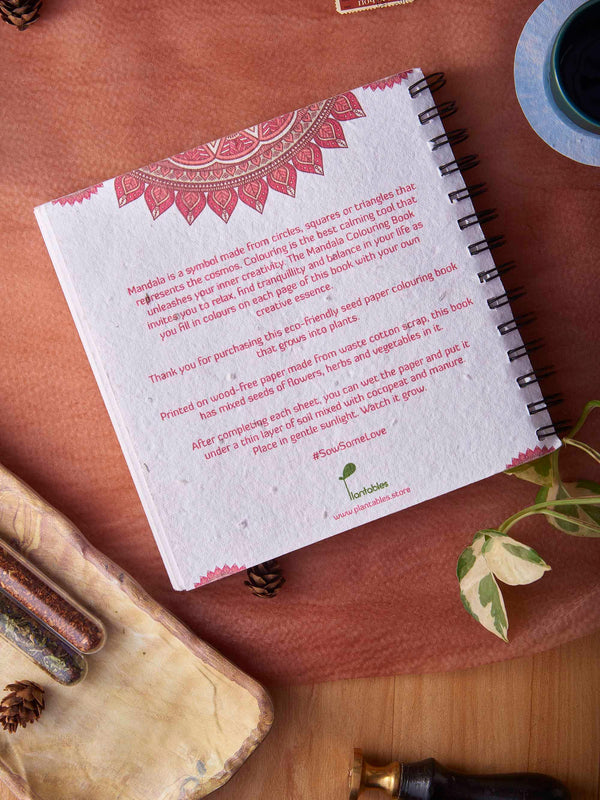 Mandala is a symbol made from circles, squares or triangles that
represents the cosmos. Colouring is the best calming tool that
unleashes your inner creativity. The Mandala Colouring Book
invites you to relax, find tranquillity and balance in your life as
you fill in colours on each page of this book with your own
creative essence.
Thank you for purchasing this eco-friendly seed paper colouring book
that grows into plants.
Printed on wood-free paper made from waste cotton scrap, this book
has mixed seeds of flowers, herbs and vegetables in it.
After completing each sheet, you can wet the paper and put it
under a thin layer of soil mixed with cocopeat and manure.
Place in gentle sunlight. Watch it grow.
#SowSomeLove
plantables
www.plantables.store